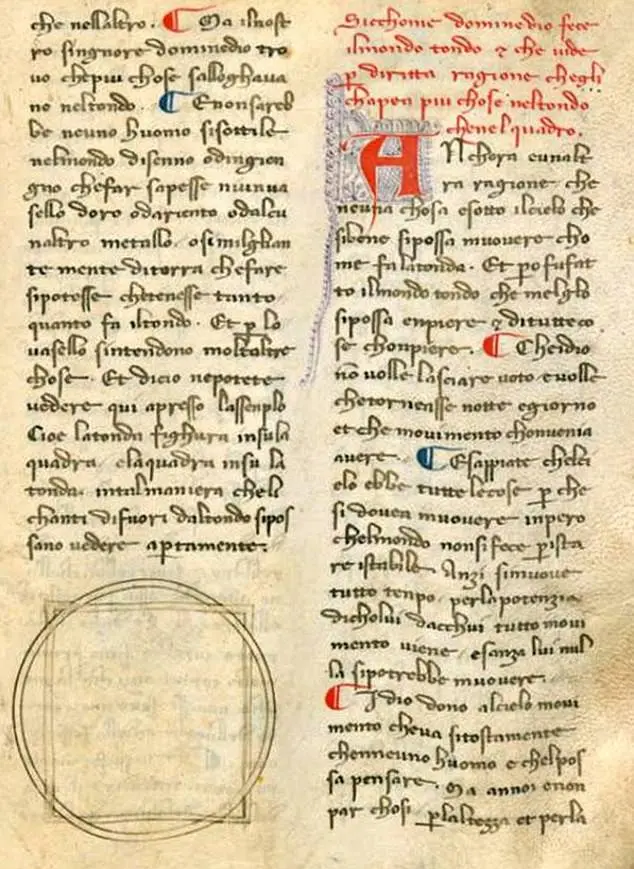 che nellaltro. Ma ilnost
ro singnore domineddio tro
uo chepiu chose salloghaua
no neltondo. Enonsareb
be neuno huomo sisottile
nelmondo disenno odingien
gno chefar sapesse niunua
sello doro odariento odalcu
naltro metallo. osimilglian
te mente diterra chefare
sipotesse chetenesse tanto
quanto fa iltondo. Et p lo
uasello sintendono moltaltre
chose. Et dicio nepotete
uedere qui apresso lassenplo
Cioe latonda fighura insula
quadra. elaquadra insu la
tonda. intalmaniera chelli
chanti difuori daltondo sipos
sano uedere aptamente.
Sicchome domineddio fece
ilmondo tondo 7 che uide
p diritta ragione chegli
chapea piu chose neltondo
chenelquadro.
ANchora eunalt
ra ragione che
neuna chosa esotto ilcielo che
sibene sipossa muouere cho
me falatonda. Et po fu fat
to ilmondo tondo che melglo
sipossa enpiere 7 ditutteco
se chonpiere. Cheidio
nō uolle lasciare uoto euolle
chetornasse notte egiorno
et che mouimento chonuenia
auere. Esappiate chelci
elo ebbe tutte lecose p che
si douea muouere inpero
chelmondo nonsifece p ista
re istabile. Anzi simuoue
tutto tenpo. perlapotenzia
dicholui dacchui tutto moui
mento uiene. esanza lui nul
la sipotrebbe muouere.
Idio dono alcielo moui
mento cheua sitostamente
chenneuno huomo e chelpos
sa pensare. Ma annoi enon
par chosi plaltezza et perla